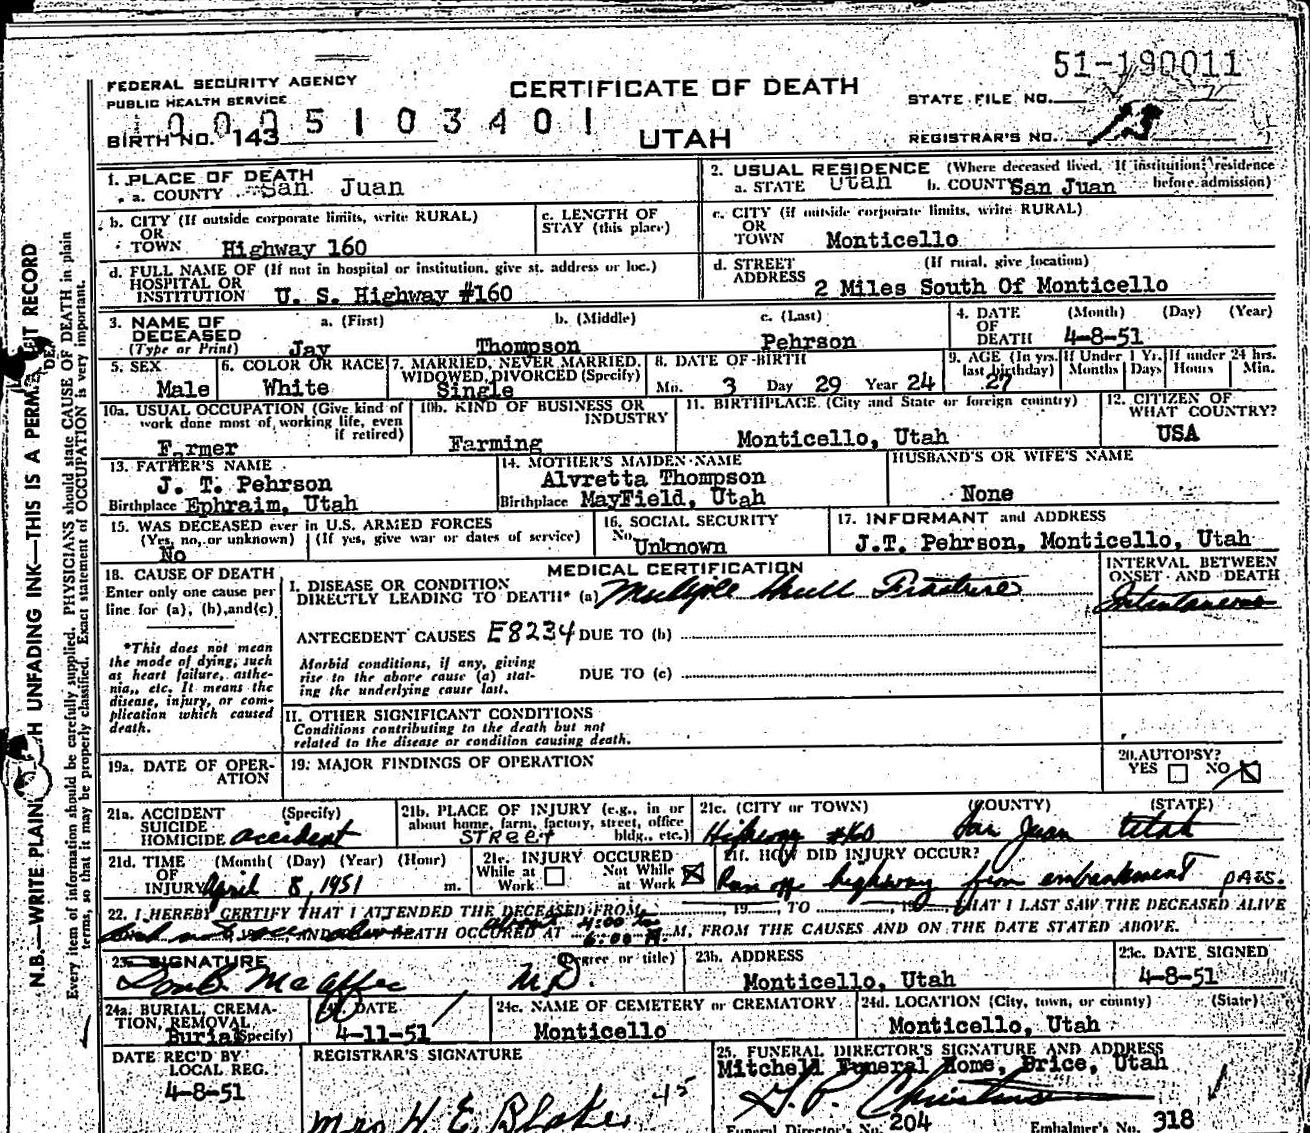 51-190011
FEDERAL SECURITY AGENCY
PUBLIC HEALTH SERVICE
CERTIFICATE OF DEATH
STATE FILE NO.
0005103401
BIRTH NO. 143
UTAH
REGISTRAR'S NO.
1. PLACE OF DEATH
a. COUNTY San Juan
2. USUAL RESIDENCE (Where deceased lived. If institution: residence before admission)
a. STATE Utah b. COUNTY San Juan
b. CITY (If outside corporate limits, write RURAL)
OR
TOWN Highway 160
c. LENGTH OF
STAY (this place)
c. CITY (If outside corporate limits, write RURAL)
OR
TOWN Monticello
d. FULL NAME OF (If not in hospital or institution, give st. address or loc.)
HOSPITAL OR
INSTITUTION U. S. Highway #160
d. STREET (If rural, give location)
ADDRESS 2 Miles South Of Monticello
3. NAME OF DECEASED (Type or Print)
a. (First) b. (Middle) c. (Last)
Jay Thompson Pehrson
4. DATE OF DEATH (Month) (Day) (Year)
4-8-51
5. SEX
Male
6. COLOR OR RACE
White
7. MARRIED, NEVER MARRIED,
WIDOWED, DIVORCED (Specify)
Single
8. DATE OF BIRTH
Mo. 3 Day 29 Year 24
9. AGE (In yrs. last birthday)
27
If Under 1 Yr.
Months Days
If under 24 hrs.
Hours Min.
10a. USUAL OCCUPATION (Give kind of
work done most of working life, even
if retired)
Farmer
10b. KIND OF BUSINESS OR
INDUSTRY
Farming
11. BIRTHPLACE (City and State or foreign country)
Monticello, Utah
12. CITIZEN OF
WHAT COUNTRY?
USA
13. FATHER'S NAME
J. T. Pehrson
Birthplace Ephraim, Utah
14. MOTHER'S MAIDEN NAME
Alvretta Thompson
Birthplace MayField, Utah
HUSBAND'S OR WIFE'S NAME
None
15. WAS DECEASED ever in U.S. ARMED FORCES
(Yes, no, or unknown) (If yes, give war or dates of service)
No
16. SOCIAL SECURITY
No. Unknown
17. INFORMANT and ADDRESS
J.T. Pehrson, Monticello, Utah
18. CAUSE OF DEATH
Enter only one cause per
line for (a), (b), and (c)
MEDICAL CERTIFICATION
INTERVAL BETWEEN
ONSET AND DEATH
I. DISEASE OR CONDITION
DIRECTLY LEADING TO DEATH* (a) Multiple Skull Fracture
Intantaneous
ANTECEDENT CAUSES E8234 DUE TO (b)
*This does not mean
the mode of dying, such
as heart failure, asthe-
nia, etc. It means the
disease, injury, or com-
plication which caused
death.
Morbid conditions, if any, giving
rise to the above cause (a) stat-
ing the underlying cause last.
DUE TO (c)
II. OTHER SIGNIFICANT CONDITIONS
Conditions contributing to the death but not
related to the disease or condition causing death.
19a. DATE OF OPER-
ATION
19. MAJOR FINDINGS OF OPERATION
20. AUTOPSY?
YES NO
21a. ACCIDENT (Specify)
SUICIDE
HOMICIDE accident
21b. PLACE OF INJURY (e.g., in or
about home, farm, factory, street, office
bldg., etc.)
STREET
21c. (CITY or TOWN) (COUNTY) (STATE)
Highway #160 San Juan Utah
21d. TIME (Month) (Day) (Year) (Hour)
OF
INJURY April 8, 1951 m.
21e. INJURY OCCURED
While at Work Not While at Work
21f. HOW DID INJURY OCCUR?
Ran off highway from embankment PASS.
22. I HEREBY CERTIFY THAT I ATTENDED THE DECEASED FROM 19 , TO 19 , THAT I LAST SAW THE DECEASED ALIVE
AND DEATH OCCURED AT M., FROM THE CAUSES AND ON THE DATE STATED ABOVE.
23a. SIGNATURE (Degree or title)
Don B. McAffee M.D.
23b. ADDRESS
Monticello, Utah
23c. DATE SIGNED
4-8-51
24a. BURIAL, CREMA-
TION, REMOVAL
Burial (Specify)
DATE
4-11-51
24c. NAME OF CEMETERY or CREMATORY
Monticello
24d. LOCATION (City, town, or county) (State)
Monticello, Utah
DATE REC'D BY
LOCAL REG.
4-8-51
REGISTRAR'S SIGNATURE
Mrs. H E Blake
45
25. FUNERAL DIRECTOR'S SIGNATURE AND ADDRESS
Mitchell Funeral Home, Price, Utah
Funeral Director's No. 204 Embalmer's No. 318
Every item of information should be carefully supplied. PHYSICIANS should state CAUSE OF DEATH in plain
terms, so that it may be properly classified. Exact statement of OCCUPATION is very important.